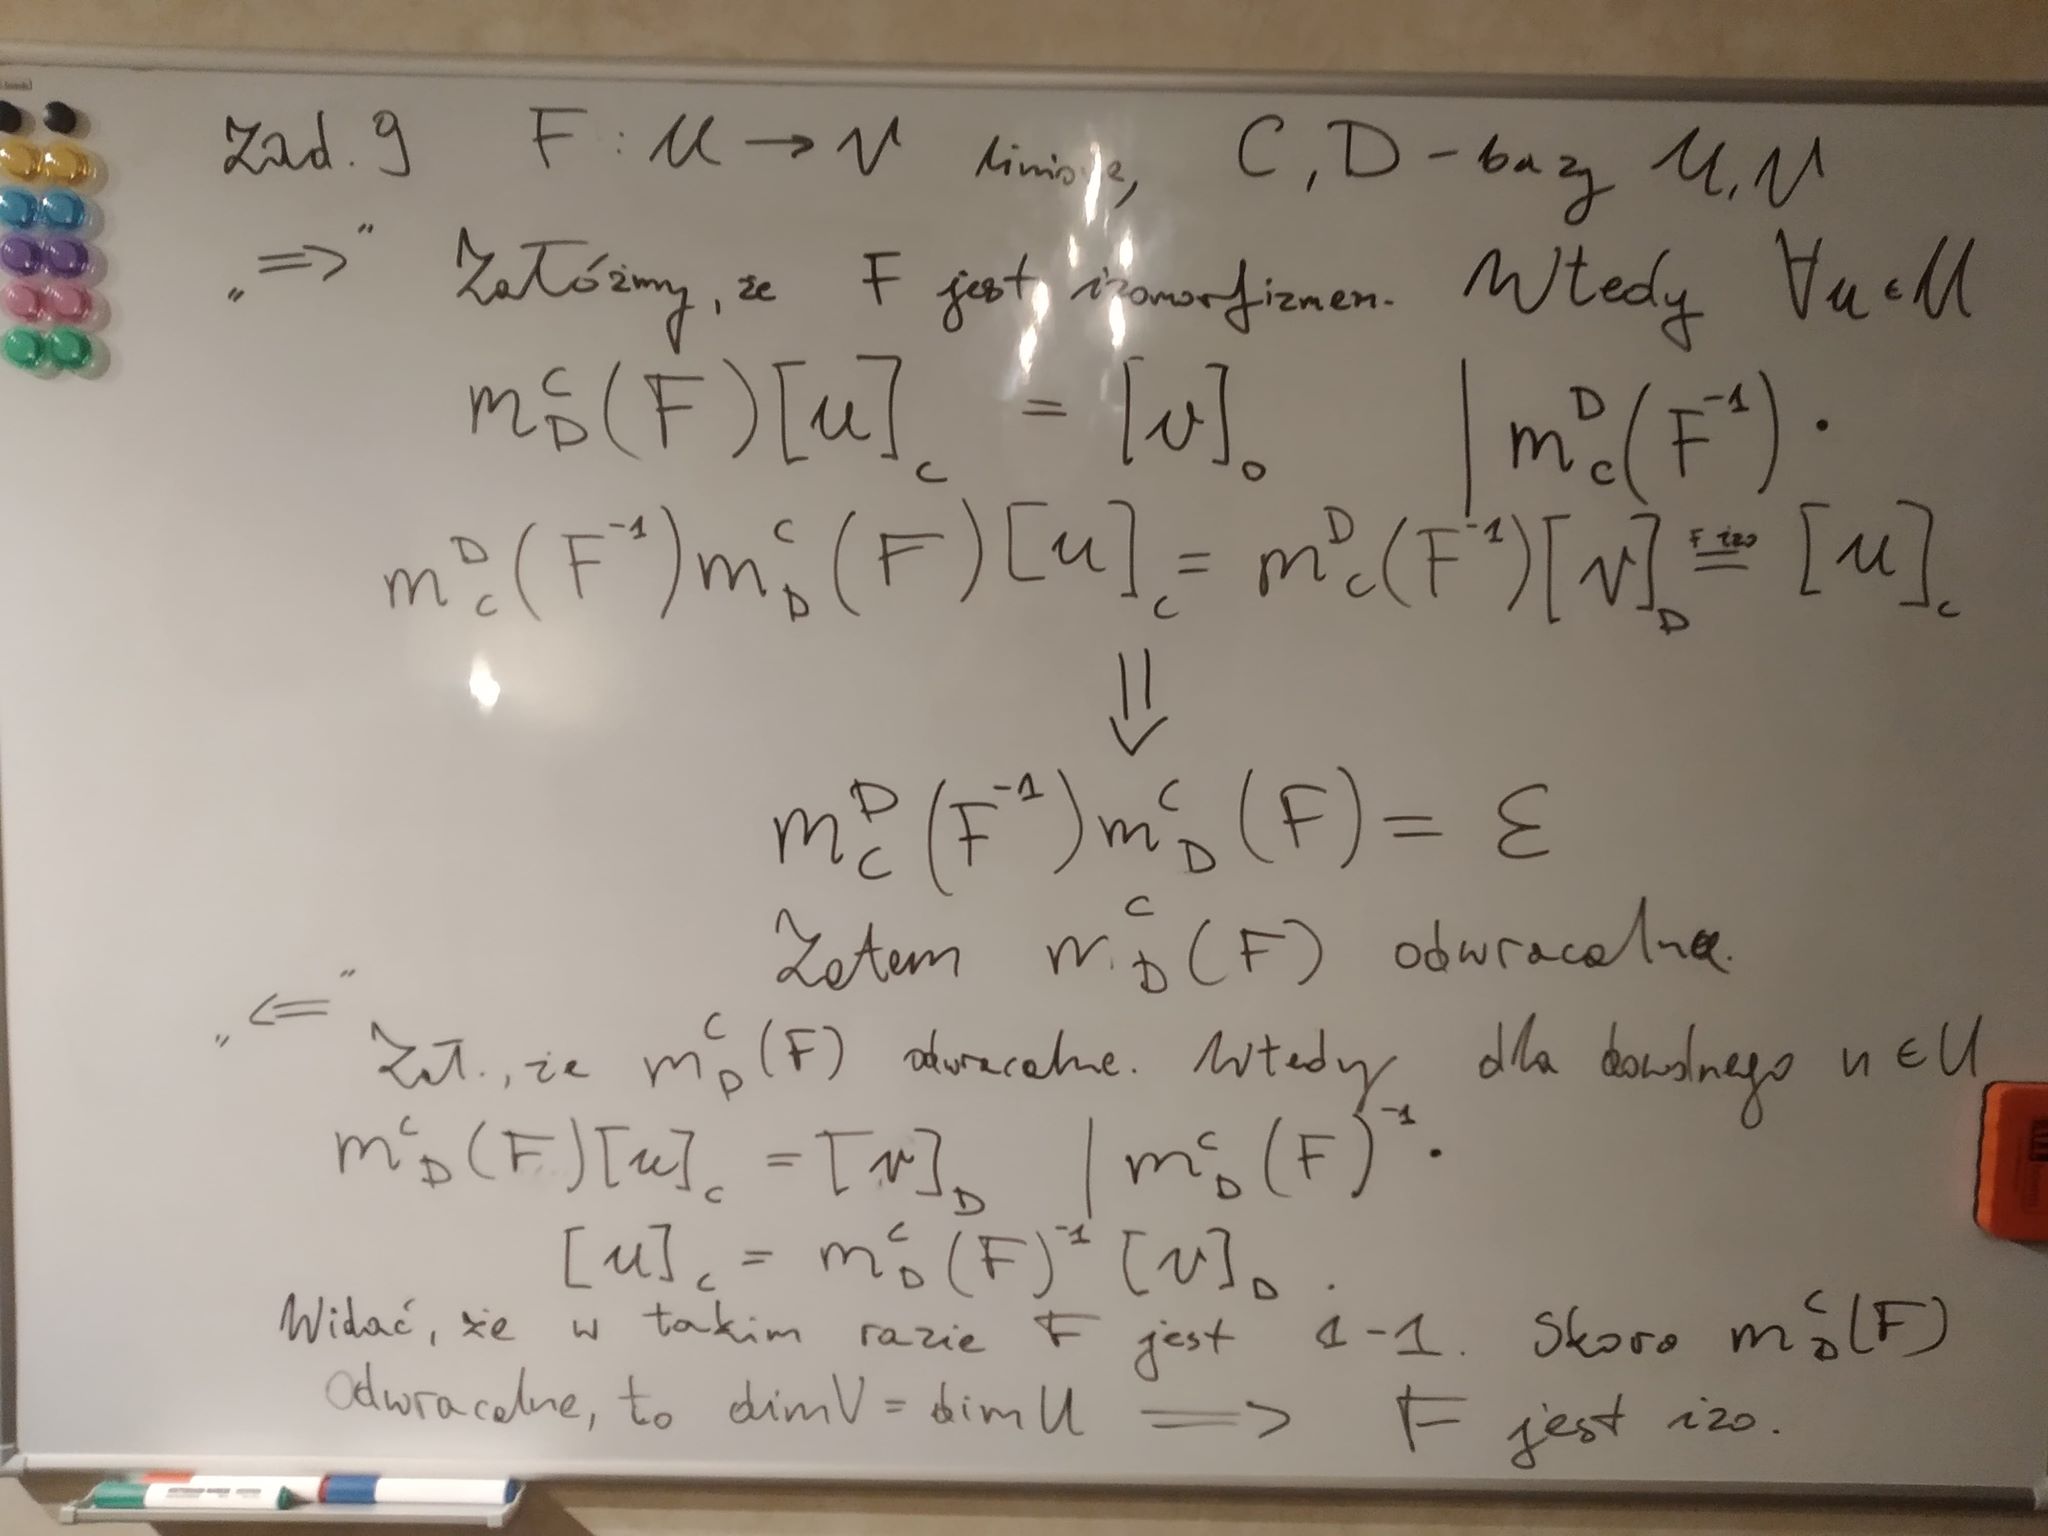 Zad. 9 F : U → V liniowe, C, D - bazy U, V
„⇒” Załóżmy, że F jest izomorfizmem. Wtedy ∀u∈U
m^C_D(F)[u]_C = [v]_D | m^D_C(F^-1) ·
m^D_C(F^-1) m^C_D(F)[u]_C = m^D_C(F^-1)[v]_D =^{F izo} [u]_C
⇓
m^D_C(F^-1) m^C_D(F) = ℰ
Zatem m^C_D(F) odwracalna.
„⇐”
Zał., że m^C_D(F) odwracalne. Wtedy dla dowolnego u ∈ U
m^C_D(F)[u]_C = [v]_D | m^C_D(F)^-1 ·
[u]_C = m^C_D(F)^-1 [v]_D .
Widać, że w takim razie F jest 1-1. Skoro m^C_D(F)
odwracalne, to dim V = dim U ⟹ F jest izo.